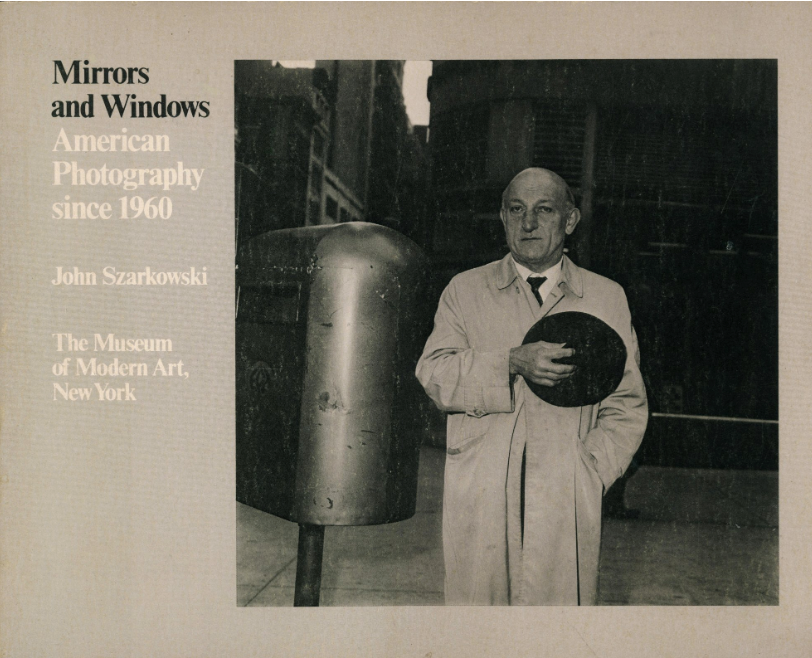 Mirrors
and Windows
American
Photography
since 1960
John Szarkowski
The Museum
of Modern Art,
New York